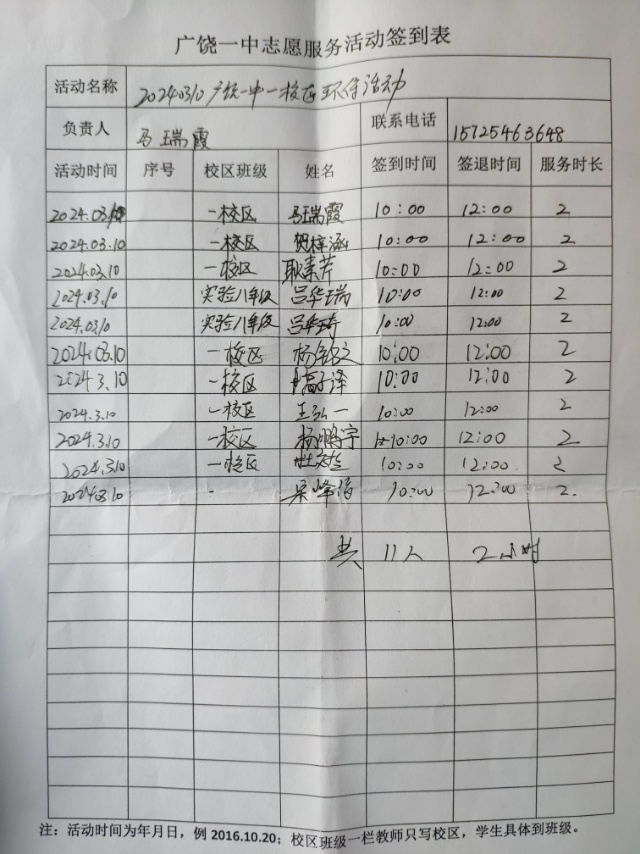 广饶一中志愿服务活动签到表
活动名称 20240310广饶一中一校区环保活动
负责人 马瑞霞 联系电话 15725463648
活动时间 序号 校区班级 姓名 签到时间 签退时间 服务时长
2024.03.10 一校区 马瑞霞 10:00 12:00 2
2024.03.10 一校区 贺梓涵 10:00 12:00 2
2024.03.10 一校区 耿素芹 10:00 12:00 2
2024.03.10 实验八年级 吕华瑞 10:00 12:00 2
2024.03.10 实验八年级 吕华琦 10:00 12:00 2
2024.03.10 一校区 10:00 12:00 2
2024.3.10 一校区 10:00 12:00 2
2024.3.10 一校区 王弘一 10:00 12:00 2
2024.3.10 一校区 杨鹏宇 10:00 12:00 2
2024.3.10 一校区 10:00 12:00 2
2024.03.10 10:00 12:00 2.
共 11人 2小时
注：活动时间为年月日，例 2016.10.20；校区班级一栏教师只写校区，学生具体到班级。